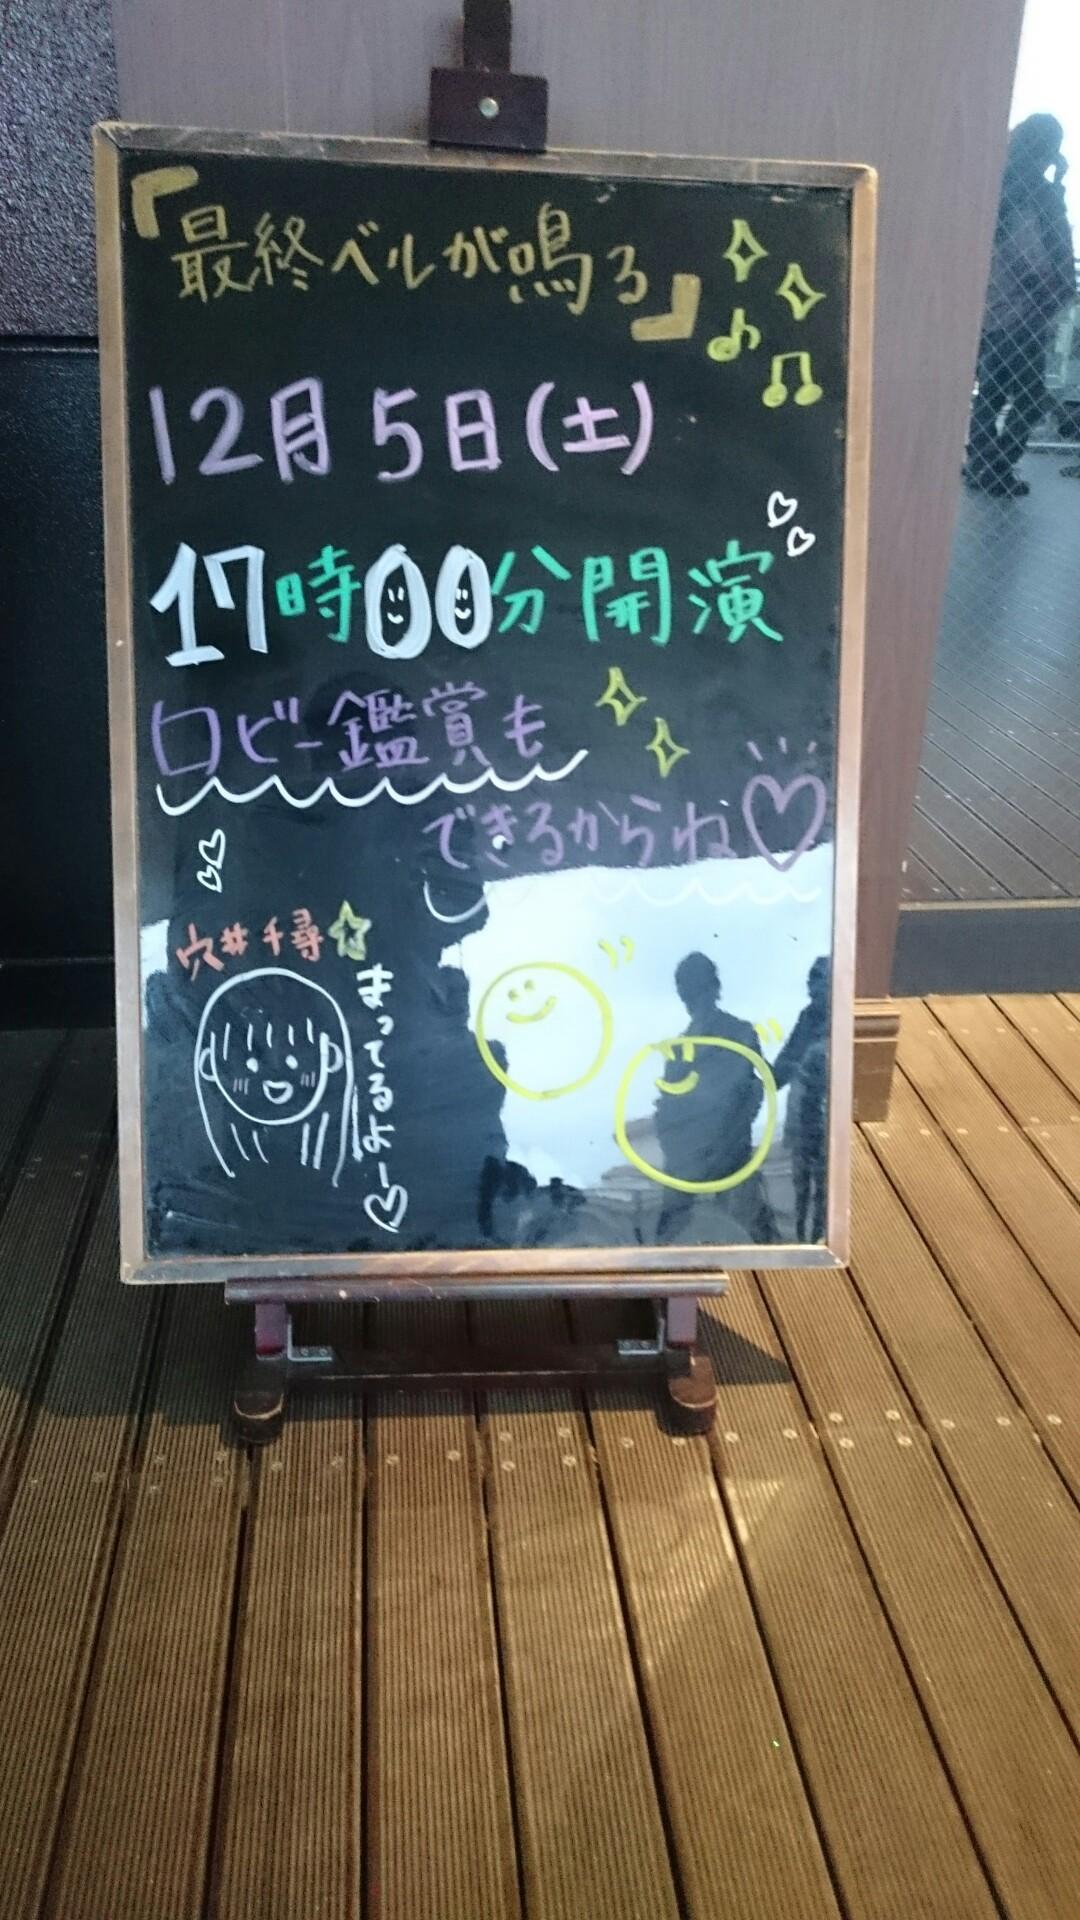 『最終ベルが鳴る』
12月5日(土)
17時00分開演
ロビー鑑賞も
できるからね♡
穴井千尋☆
まってるよー♡